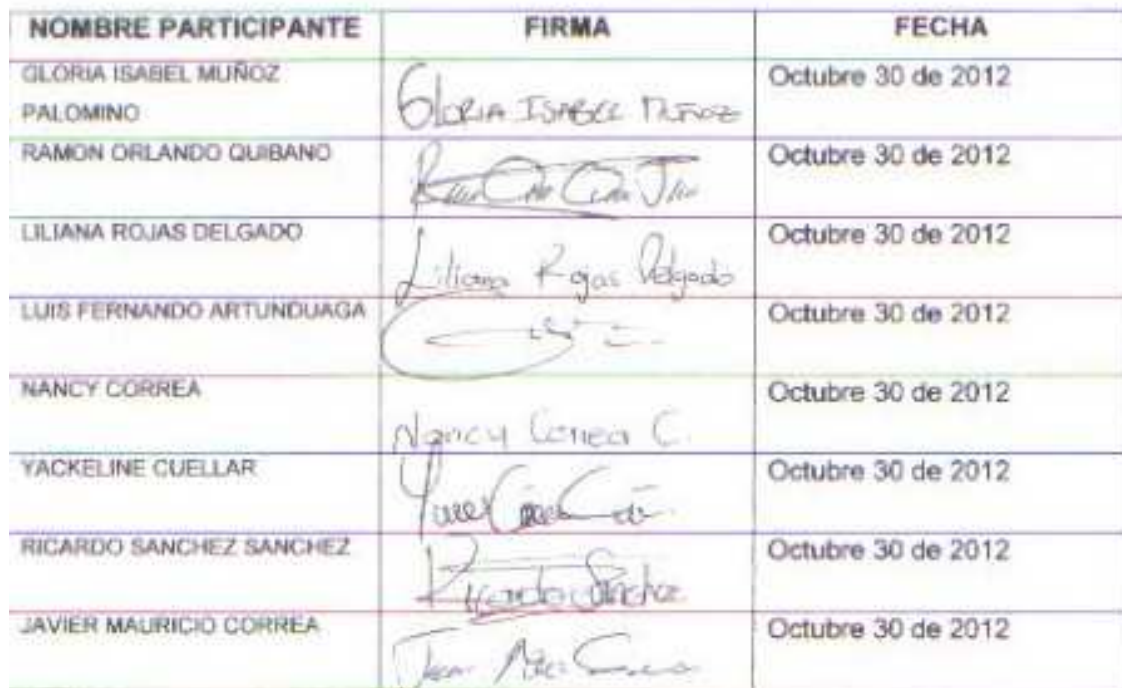 NOMBRE PARTICIPANTE FIRMA FECHA
GLORIA ISABEL MUÑOZ
PALOMINO
GLORIA ISABEL MUÑOZ
Octubre 30 de 2012
RAMON ORLANDO QUIBANO
Octubre 30 de 2012
LILIANA ROJAS DELGADO
Liliana Rojas Delgado
Octubre 30 de 2012
LUIS FERNANDO ARTUNDUAGA
Octubre 30 de 2012
NANCY CORREA
Nancy Correa C.
Octubre 30 de 2012
YACKELINE CUELLAR
Octubre 30 de 2012
RICARDO SANCHEZ SANCHEZ
Ricardo Sánchez
Octubre 30 de 2012
JAVIER MAURICIO CORREA
Octubre 30 de 2012